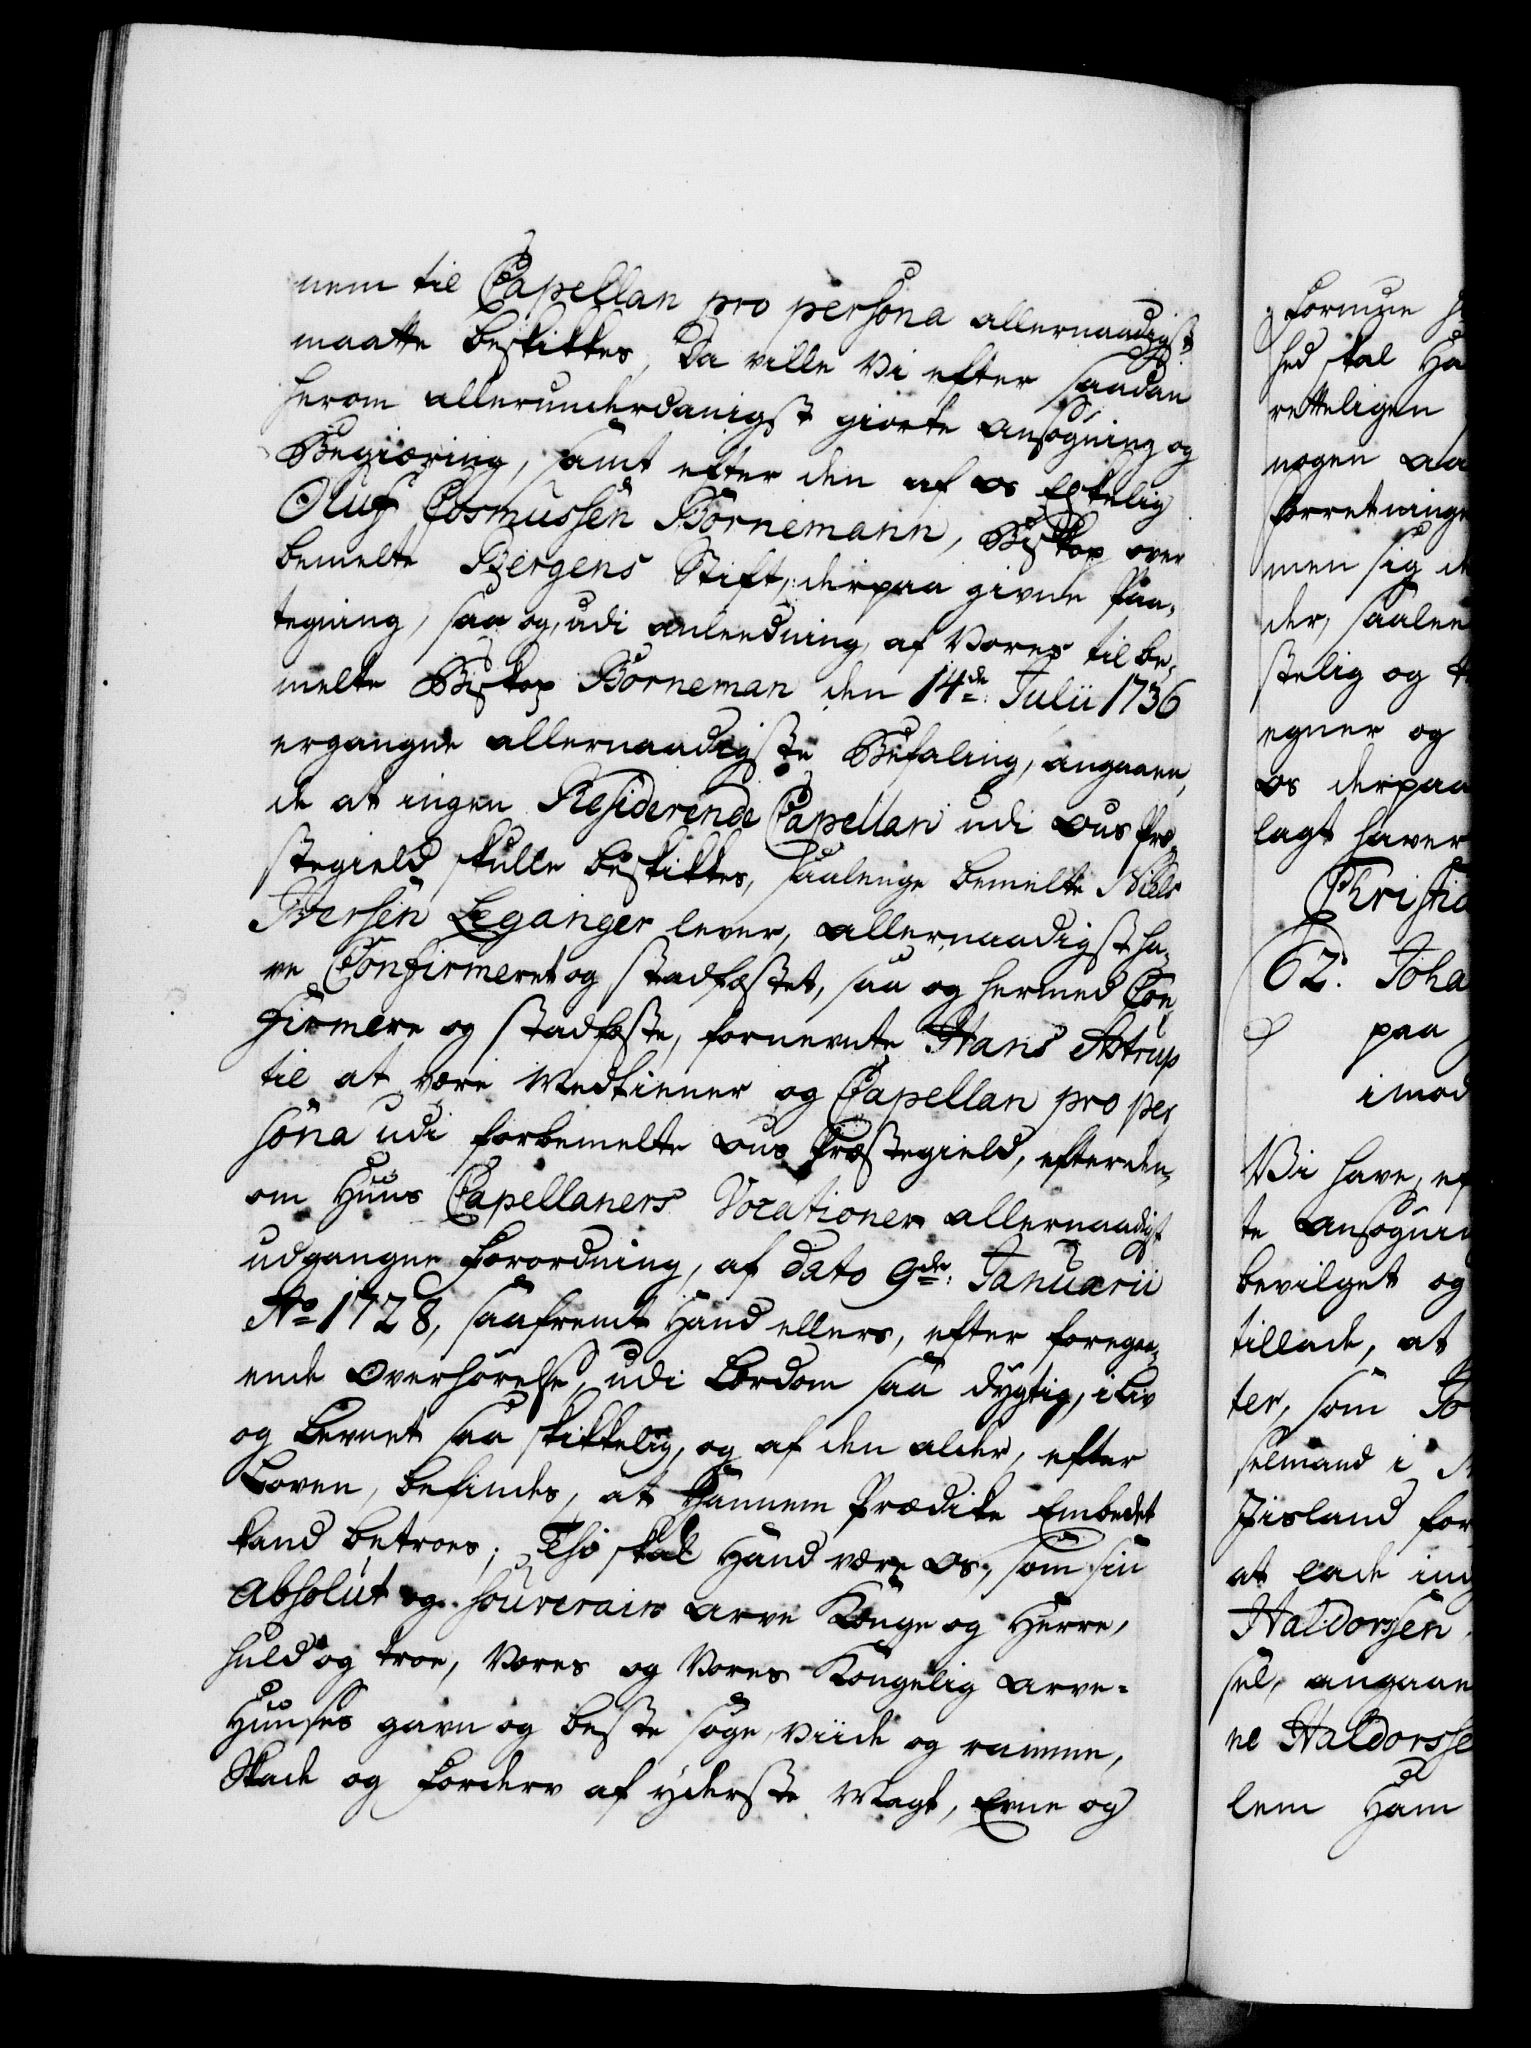 nem til Capellan pro persona allernaadigst
maatte beskikkes, Da ville Vi efter saadan
herom allerunderdanigst giorte ansøgning og
Begiæring, samt efter den af os Elskelig
Oluf Cosmussen Bornemann, Biskop over
bemelte Bergens Stift, derpaa givne Paa-
tegning, saa og, udi anleedning af Vores til be-
melte Biskop Borneman den 14de Julii 1736
ergangne allernaadigste Befaling, angaaen-
de at ingen Residerende Capellan udi Ous Præ-
stegield skulle beskikkes, saalenge bemelte Niels
Iversen Leganger lever, allernaadigst ha-
ve Confirmeret og stadfæstet, saa og hermed Con-
firmere og stadfæste, fornevnte Hans Astrup
til at være Medtiener og Capellan pro per
sona udi forbemelte Ous Præstegield, efter den,
om Huus Capellaners Vocationer allernaadigst
udgangne Forordning, af dato 9de Januarii
Ao 1728, saafremt Hand ellers, efter foregaa-
ende Overhørelse, udi Lærdom saa dygtig, i Liv
og Levnet saa skikkelig, og af den alder, efter
Loven, befindes, at Hannem Prædike Embedet
kand betroes; Thi skal Hand være Os, som sin
absolut og souverain Arve Konge og Herre,
huld og troe, Vores og Vores Kongelig Arve-
Huuses gavn og beste søge, Viide og ramme,
Skade og Forderv af yderste Magt, Evne og
Formue
hed skal Ha
retteligen
nogen
Forretninge
men sig de
der, saalee
stelig og
egner og
os derpaa
lagt haver
Christia
62. Joha
paa
imod
Vi have, ef
te Ansøgnin
bevilget og
tillade, at
ter, som Jo
selmand i
Iisland for
at lade ind
Haldorssen
sel, angaaen
ne Haldorsse
lem Ham